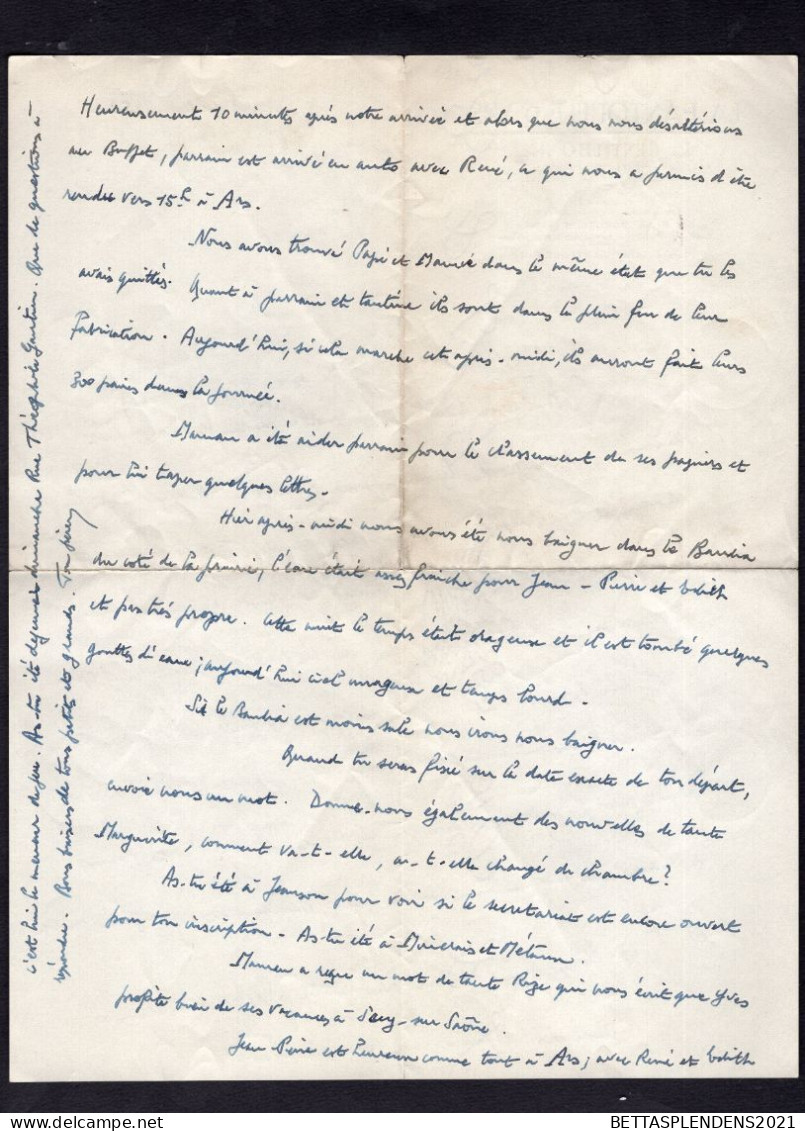 Heureusement 10 minutes après notre arrivée et alors que nous nous désaltérions
au Buffet, parrain est arrivé en auto avec René, ce qui nous a permis d'être
rendus vers 15h à Ars.
Nous avons trouvé Papé et dans le même état que tu les
avais quittés. Quant à parrain et tantine ils sont dans le plein feu de leur
fabrication. Aujourd'hui, si cela marche cet après-midi, ils auront fait leurs
300 paires dans la journée.
Maman a été aider parrain pour le classement de ses papiers et
pour lui taper quelques lettres.
Hier après-midi nous avons été nous baigner dans le
du coté de la prairie, l'eau était assez fraîche pour Jean-Pierre et Edith
et pas très propre. Cette nuit le temps était orageux et il est tombé quelques
gouttes d'eau; aujourd'hui ciel nuageux et temps lourd.
Si le est moins sale nous irons nous baigner.
Quand tu seras fixé sur la date exacte de ton départ,
envoie nous un mot. Donne-nous également des nouvelles de tante
Marguerite, comment va-t-elle, a-t-elle changé de chambre?
As-tu été à Jeanson pour voir si le secretariat est encore ouvert
pour ton inscription. As-tu été à et
Maman a reçu un mot de tante qui nous écrit que Yves
profite bien de ses vacances à Scey-sur-Saône.
Jean Pierre est heureux comme tout à Ars; avec René et Edith
c'est lui le meneur de jeu. As-tu été depuis dimanche Rue Théophile Gautier. Que de questions à
répondre. Bons baisers de tous petits et grands. Ton père
BETTASPLENDENS2021